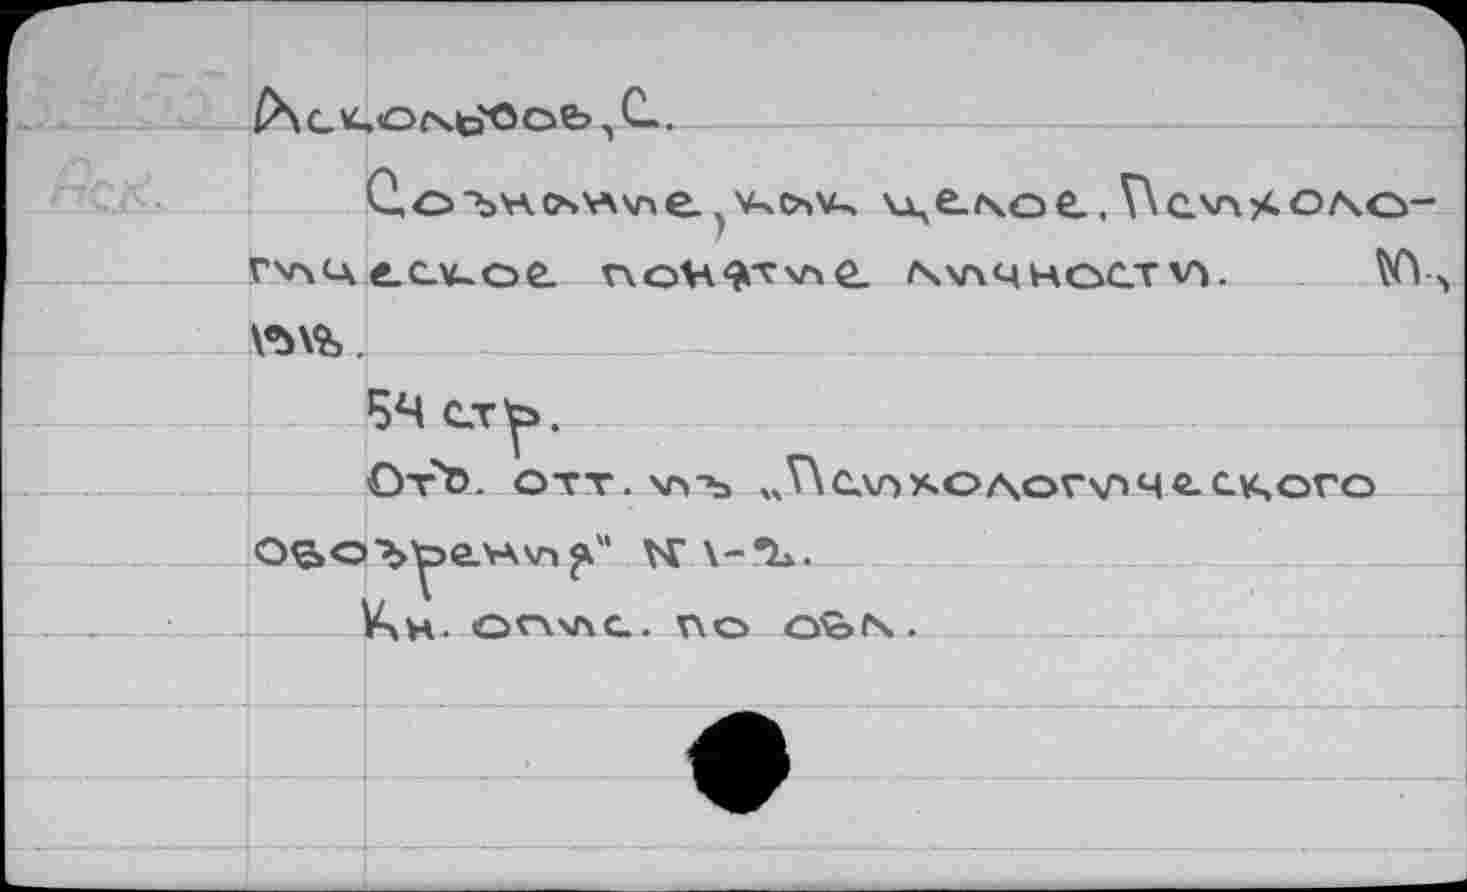 Аскольдов, С.
Аск.
Сознание, как целое. Психоло-
гическое понятие личности. М.,
1918.
54 стр.
Отд. отт. из „Психологического
обозрения" № 1-2.
Кн. опис. по обл.